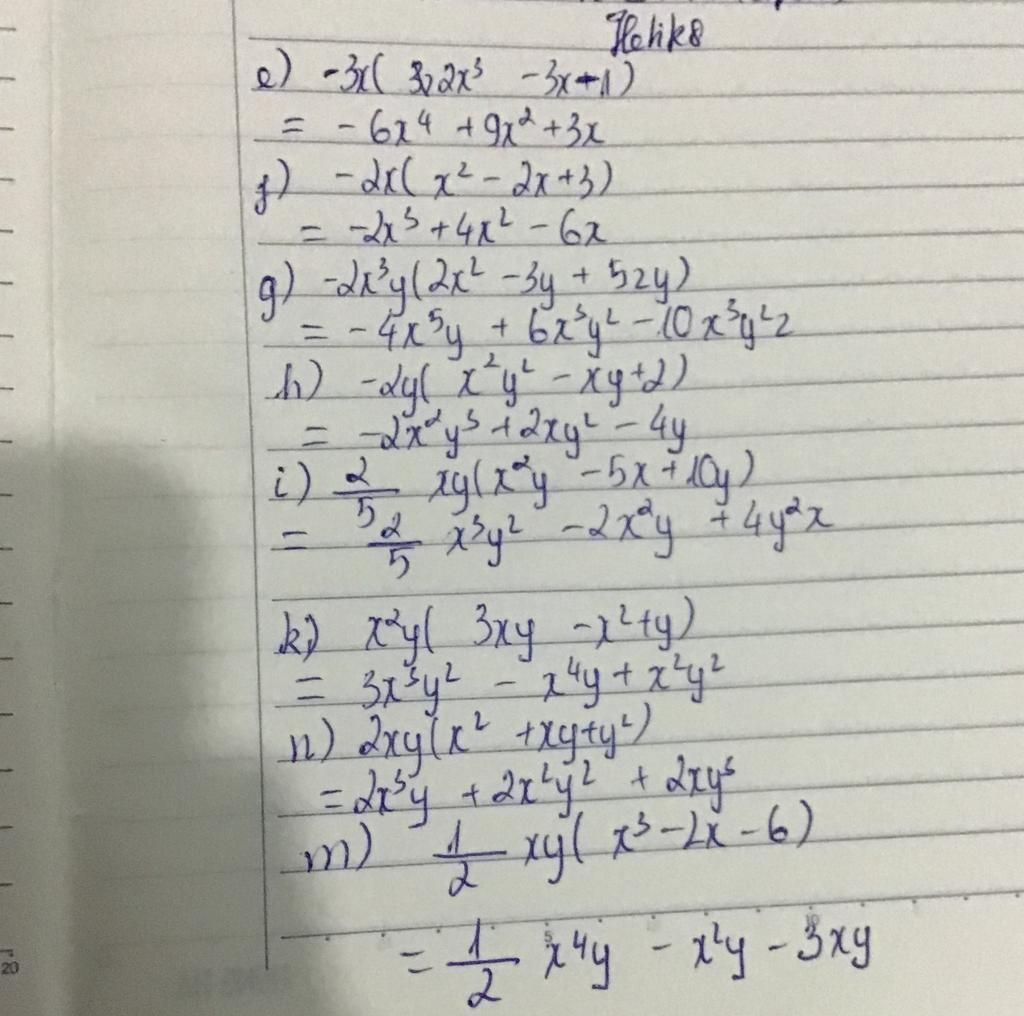 e) -3x( 2x³ - 3x + 1)
= - 6x⁴ + 9x² + 3x
f) -2x( x² - 2x + 3)
= -2x³ + 4x² - 6x
g) -2x³y(2x² - 3y + 5zy)
= - 4x⁵y + 6x³y² - 10x³y²z
h) -2y( x²y² - xy + 2)
= -2x²y³ + 2xy² - 4y
i) 2/5 xy(x²y - 5x + 10y)
= 2/5 x³y² - 2x²y + 4y²x
k) x²y( 3xy - x² + y)
= 3x³y² - x⁴y + x²y²
n) 2xy(x² + xy + y²)
= 2x³y + 2x²y² + 2xy³
m) 1/2 xy( x³ - 2x - 6)
= 1/2 x⁴y - x²y - 3xy
20